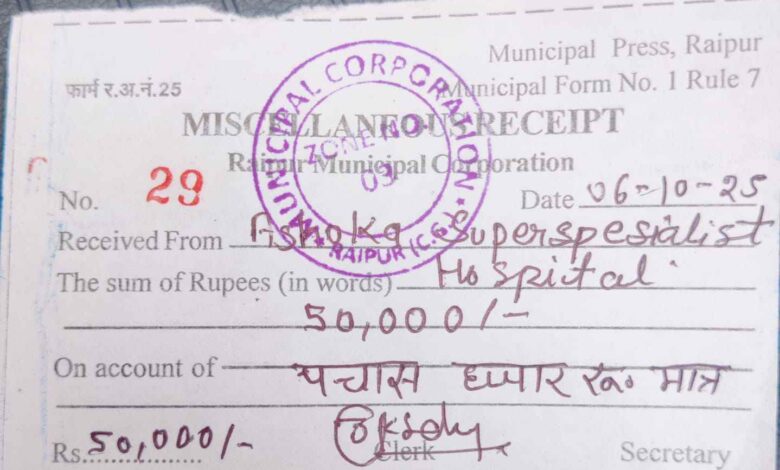 Municipal Press, Raipur
फार्म र.अ.नं.25
Municipal Form No. 1 Rule 7
MISCELLANEOUS RECEIPT
Raipur Municipal Corporation
No. 29
Date 06-10-25
Received From Ashoka Superspesialist
The sum of Rupees (in words) Hospital
50,000/-
On account of पचास हजार रू॰ मात्र
Rs. 50,000/-
Clerk
Secretary
MUNICIPAL CORPORATION
RAIPUR (C.G.)
ZONE No.
03